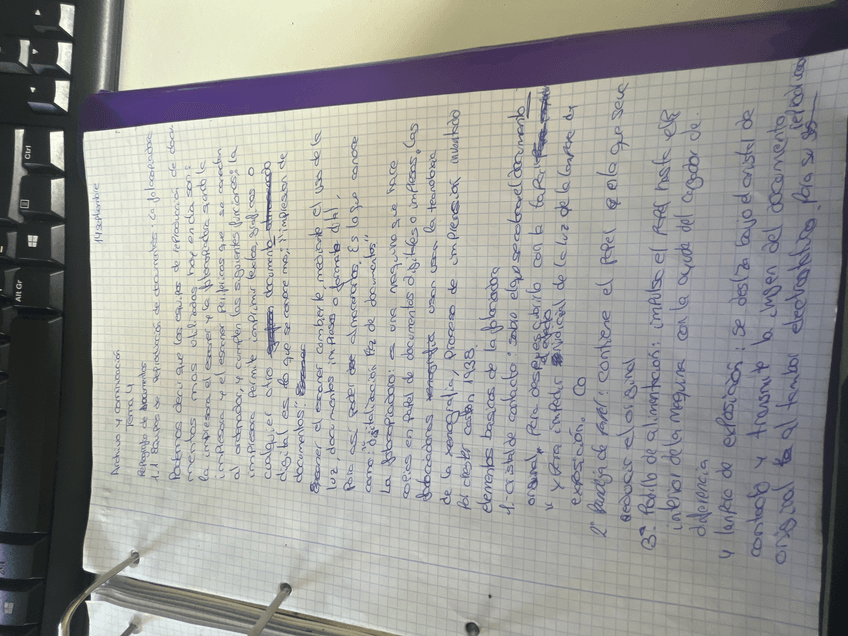 14 septiembre
Archivo y comunicación
Tema 4
Reprografía de documentos
1.1 Equipos de reproducción de documentos: la fotocopiadora
Podemos decir que los equipos de reproducción de docu
mentos mas utilizados hoy en dia son:
la impresora el escaner y la fotocopiadora siendo la
impresora y el escaner perifericos que se conectan
al ordenador, y cumplen las siguientes funciones: la
impresora permite imprimir textos, graficos o
cualquier otro documento
digital es lo que se conoce como "impresion de
documentos"
el escaner mediante el uso de la
luz, documentos impresos a formato digital,
Para asi poder almacenarlo. Es lo que conoce
como: "digitalización de documentos"
La fotocopiadora: es una maquina que hace
copias en papel de documentos digitales o impresos, las
fotocopiadoras usan la tecnologia
de la xerografia, proceso de impresion inventado
por chester carlson 1938.
elementos basicos de la fotocopiadora
1. cristal de contacto: sobre el que se coloca el documento
original, Para despues cubrirlo con la tapa
y para impedir el efecto de la luz de la lampara de
exposición. Co
2º Bandeja de papel: contiene el papel en la que
el original
3º Rodillo de alimentación: impulsa el papel hasta el
interior de la maquina con la ayuda del cargador de
diferencia
4 lampara de exposición: se desliza bajo el cristal de
contacto y transmite la imagen del documento
original al tambor Para su